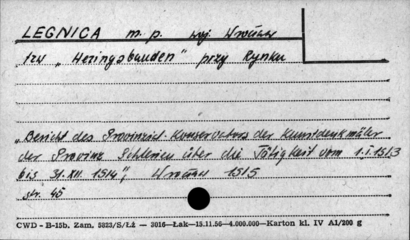 LEGNICA m. p. woj. Wrocław
tzw „Heringsbauden" przy Rynku
„Bericht des Provinzial-Konservators der Kunstdenkmäler
der Provinz Schlesien über die Tätigkeit vom 1.I.1913
bis 31.XII 1914", Wrocław 1915
str. 45
CWD - B-15b. Zam. 5823/S/Łż — 3016—Łak—15.11.56—4.000.000—Karton kl. IV A1/200 g